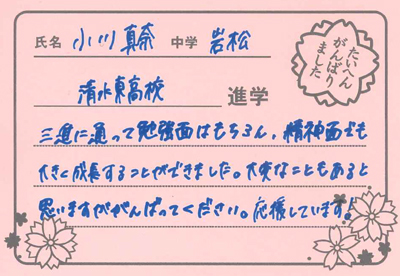 氏名 小川真奈 中学 岩松
たいへん
がんばり
ました
清水東高校 進学
三進に通って勉強面はもちろん、精神面でも
大きく成長することができました。大変なこともあると
思いますががんばってください。応援しています!